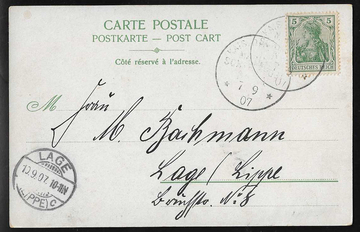 CARTE POSTALE
POSTKARTE — POST CART
Côté réservé à l'adresse.
5 5
DEUTSCHES REICH
7 9
07
M
M. Bachmann
LAGE
13.9.07. 10-11N
(LIPPE) c
Lage / Lippe